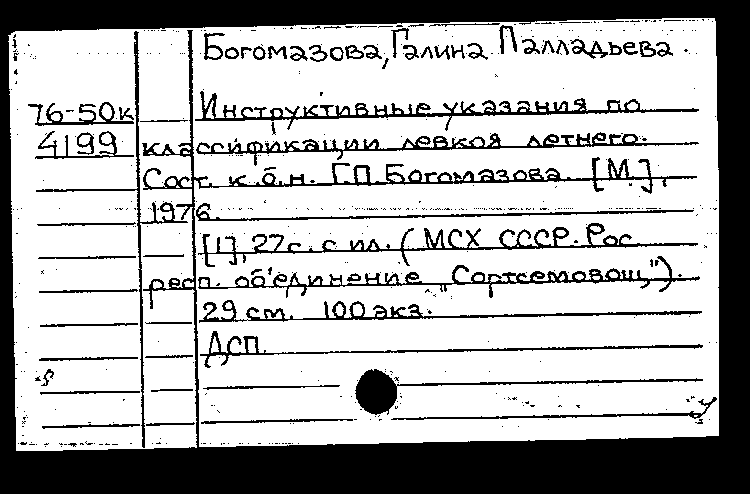 Богомазова, Галина Палладьева.
76-50к Инструктивные указания по
4199 классификации левкоя летнего.
Сост. к.б.н. Г.П. Богомазова. [М.],
1976.
[1], 27с. с ил. (МСХ СССР. Рос
респ. об'единение „Сортсемовощ").
29 см. 100 экз.
ДСП.